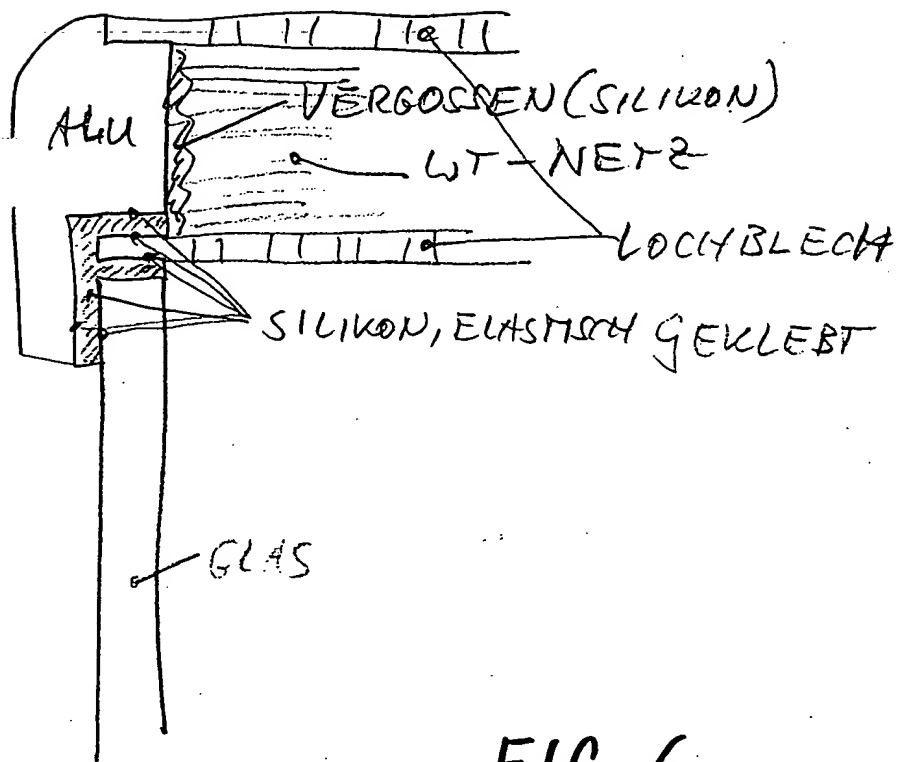 ALU
VERGOSSEN (SILIKON)
WT-NETZ
LOCHBLECH
SILIKON, ELASTISCH GEKLEBT
GLAS